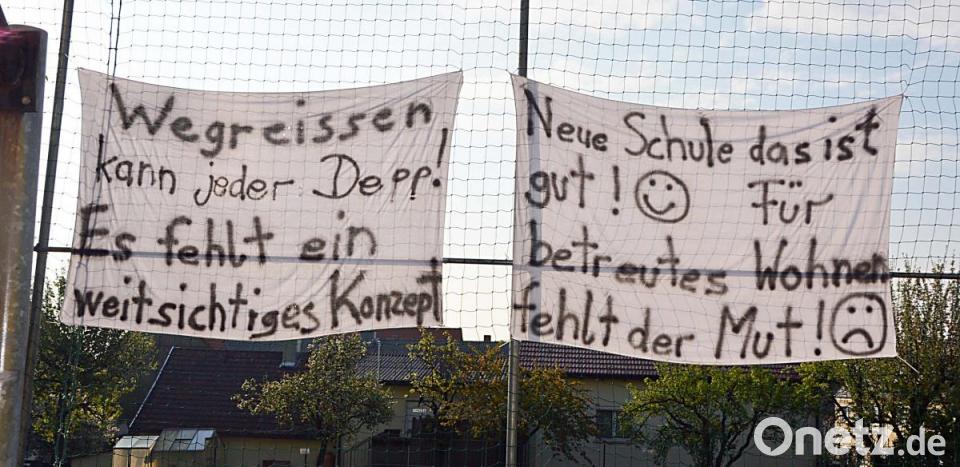 Wegreissen
kann jeder Depp!
Es fehlt ein
weitsichtiges Konzept
Neue Schule das ist
gut! ☺ Für
betreutes Wohnen
fehlt der Mut! ☹
Onetz.de